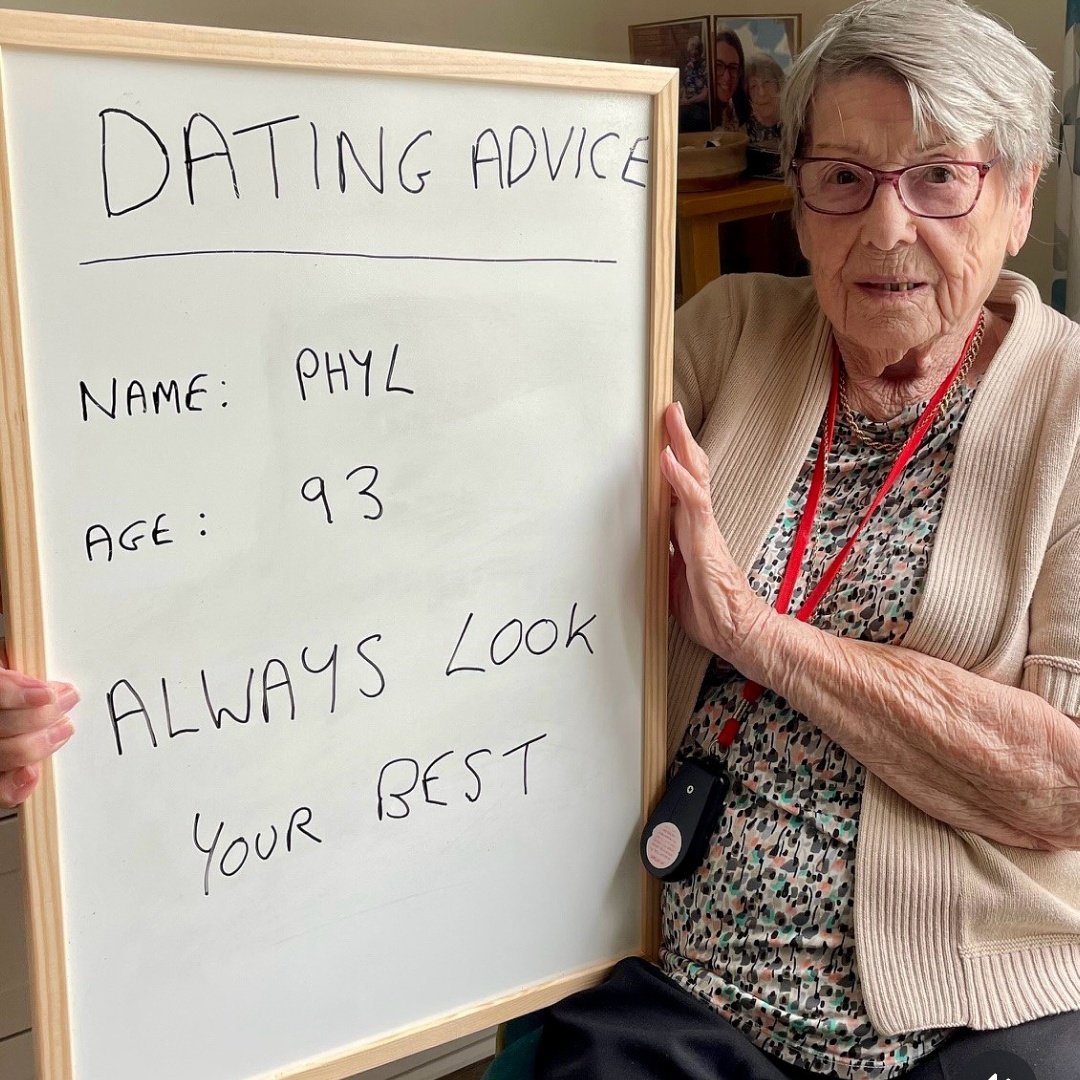 DATING ADVICE
NAME: PHYL
AGE: 93
ALWAYS LOOK
YOUR BEST